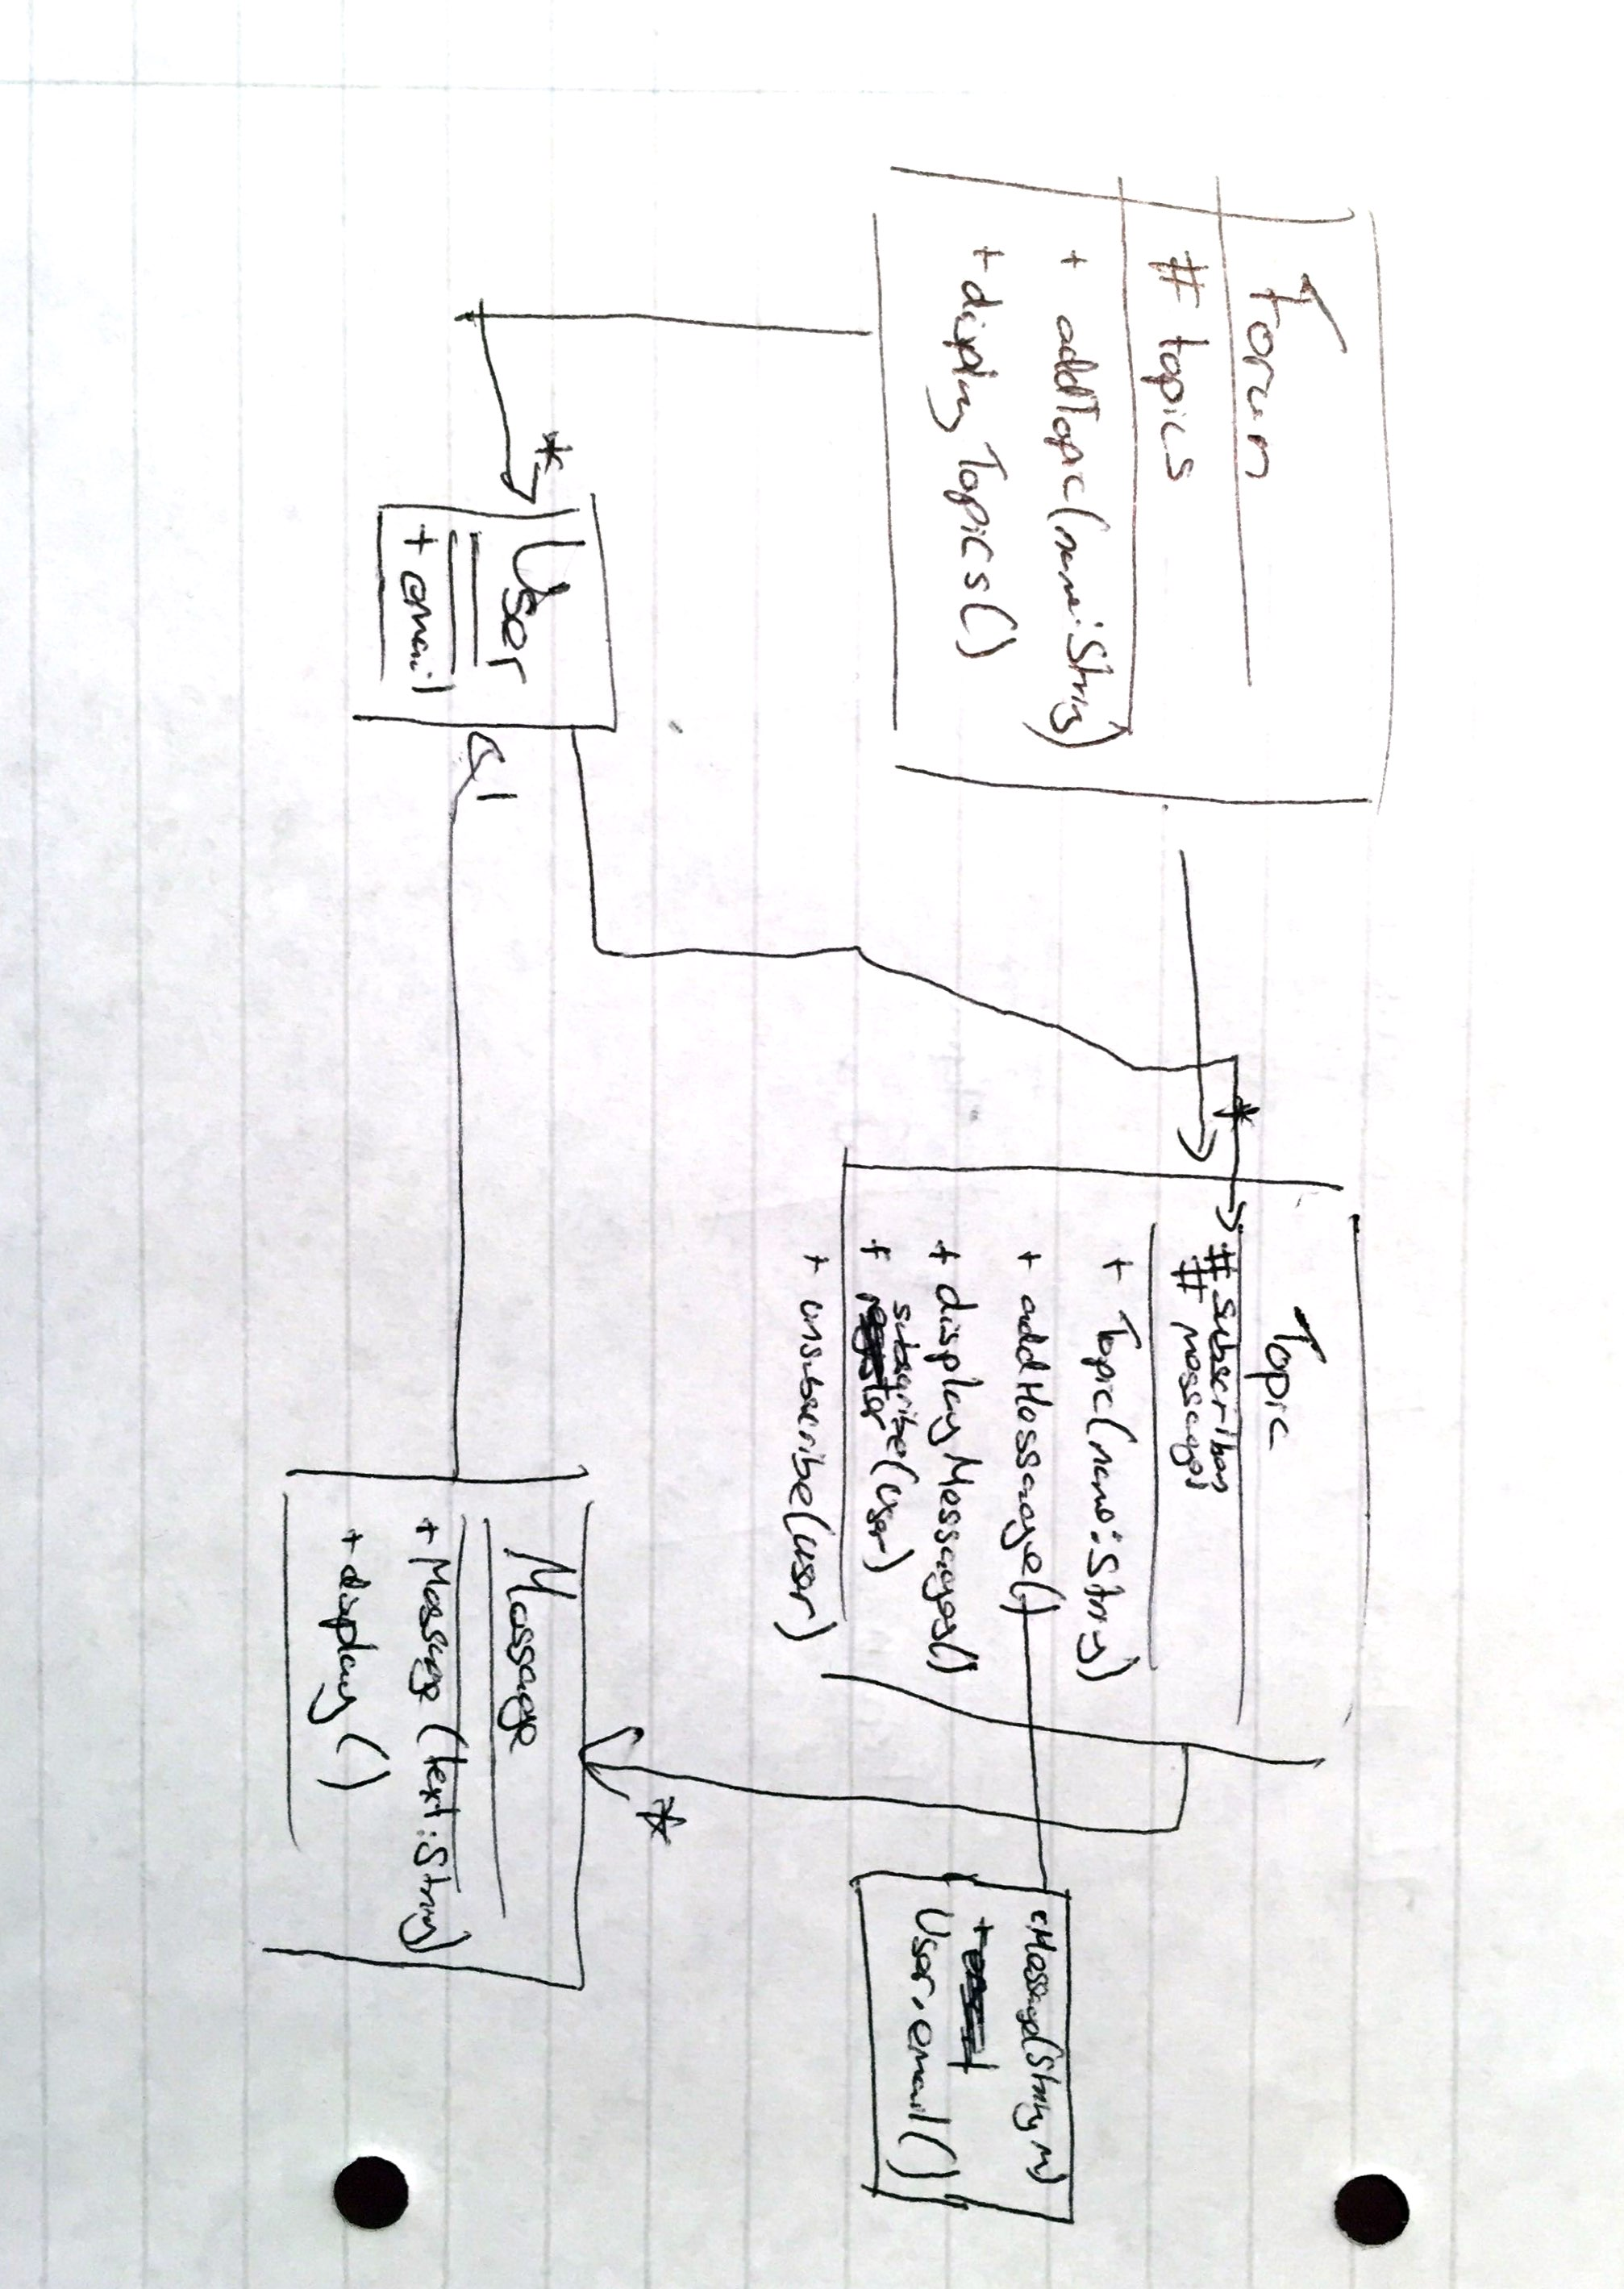 Forum
# topics
+ addTopic(name:String)
+ displayTopics()
*
User
+ email
1
*
Topic
# subscribers
# messages
+ Topic(name:String)
+ addMessage()
+ displayMessages()
subscribe(User)
+ unsubscribe(user)
*
Message
+ Message(text:String)
+ display()
Message(String m)
+
User.email()